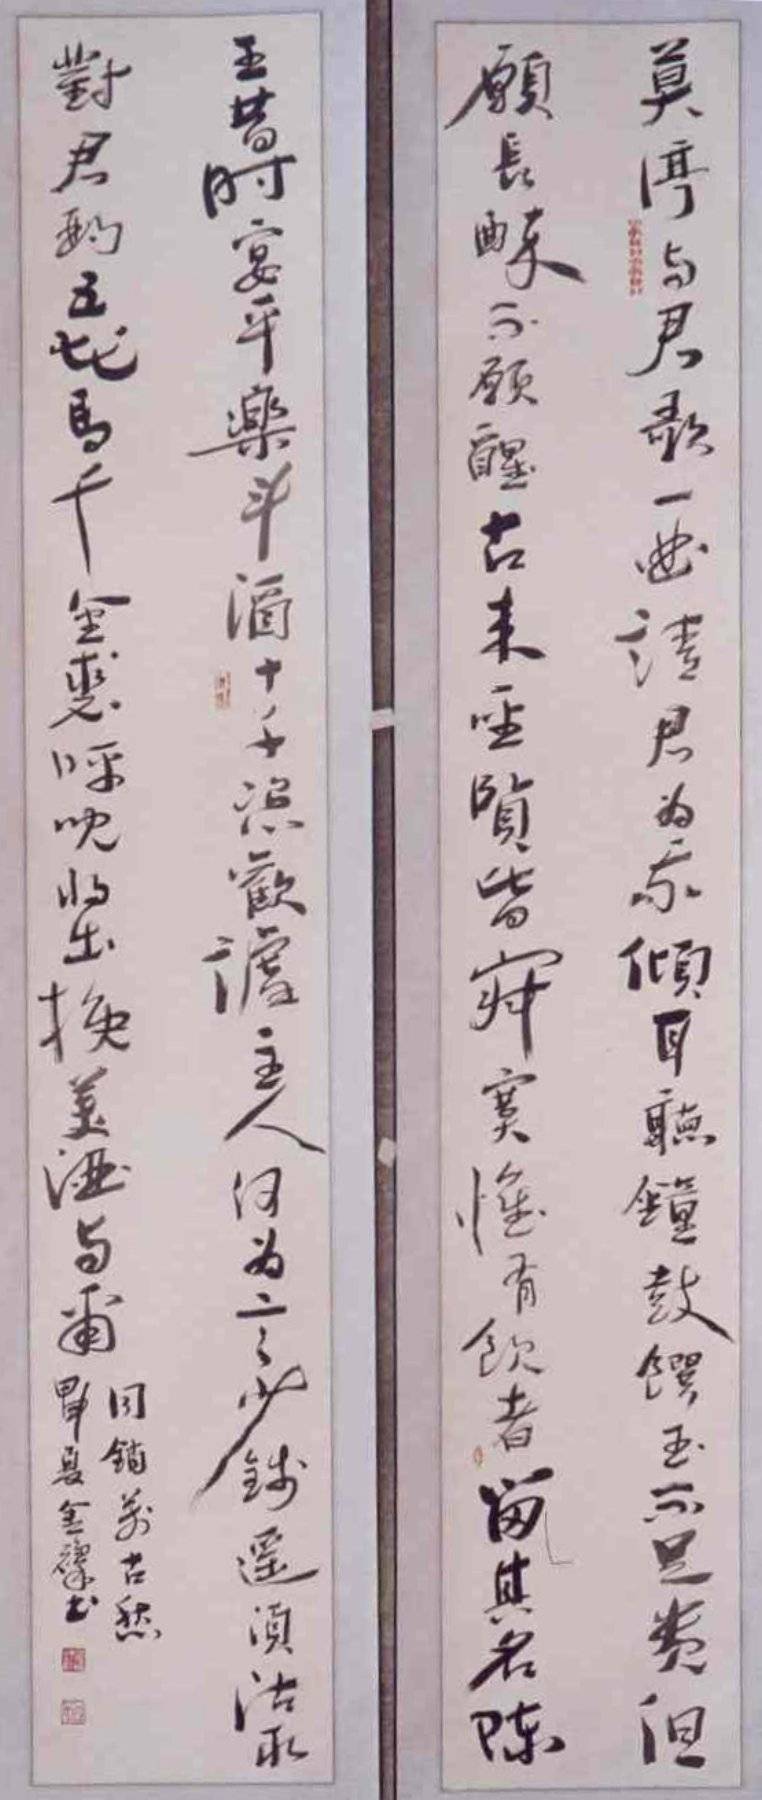 莫停与君歌一曲請君为我傾耳聽鐘鼓饌玉不足貴但
願長醉不願醒古来聖賢皆寂寞惟有飲者留其名陳
王昔時宴平樂斗酒十千恣歡謔主人何为言少錢遥須沽取
對君酌五花馬千金裘呼兒将出換美酒与爾
同銷萬古愁
夏金书